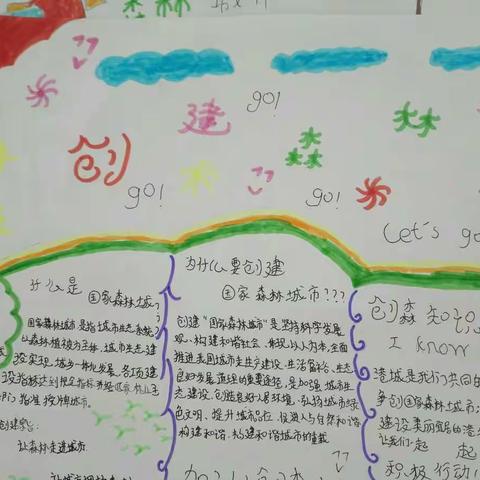 森林
go!
建
创
木木
go!
go!
Let's go
什么是
国家森林城?
国家森林城市是指城市生态系统
以森林植被为主体,城市生态建
设实现城乡一体化发展,各项建
设指标达到规定指标并经国家林业主
部门批准授牌城市
创建:
让森林走进城市
为什么要创建
国家森林城市???
创建"国家森林城市"是坚持科学发展
观、构建和谐社会、体现以人为本,全面
推进我国城市走生产发展、生活富裕、生态
良好发展道路的重要途径,是加强城市生
态建设,创造良好人居环境,弘扬城市绿
色文明,提升城市品位,促进人与自然和谐
构建和谐城市的重要载
创森知
I know
港城是我们共同的
争创国家森林城市
建设美丽的港
让我们一起 起
积极行动